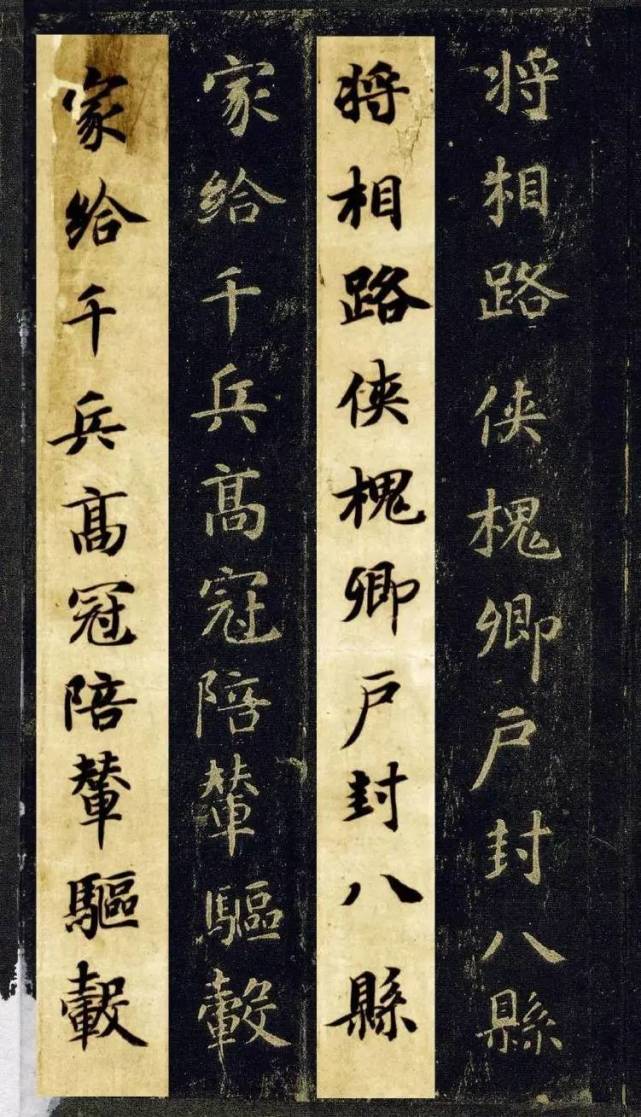 将相路侠槐卿户封八縣
将相路侠槐卿户封八縣
家给千兵髙冠陪輦驅轂
家给千兵髙冠陪輦驅轂